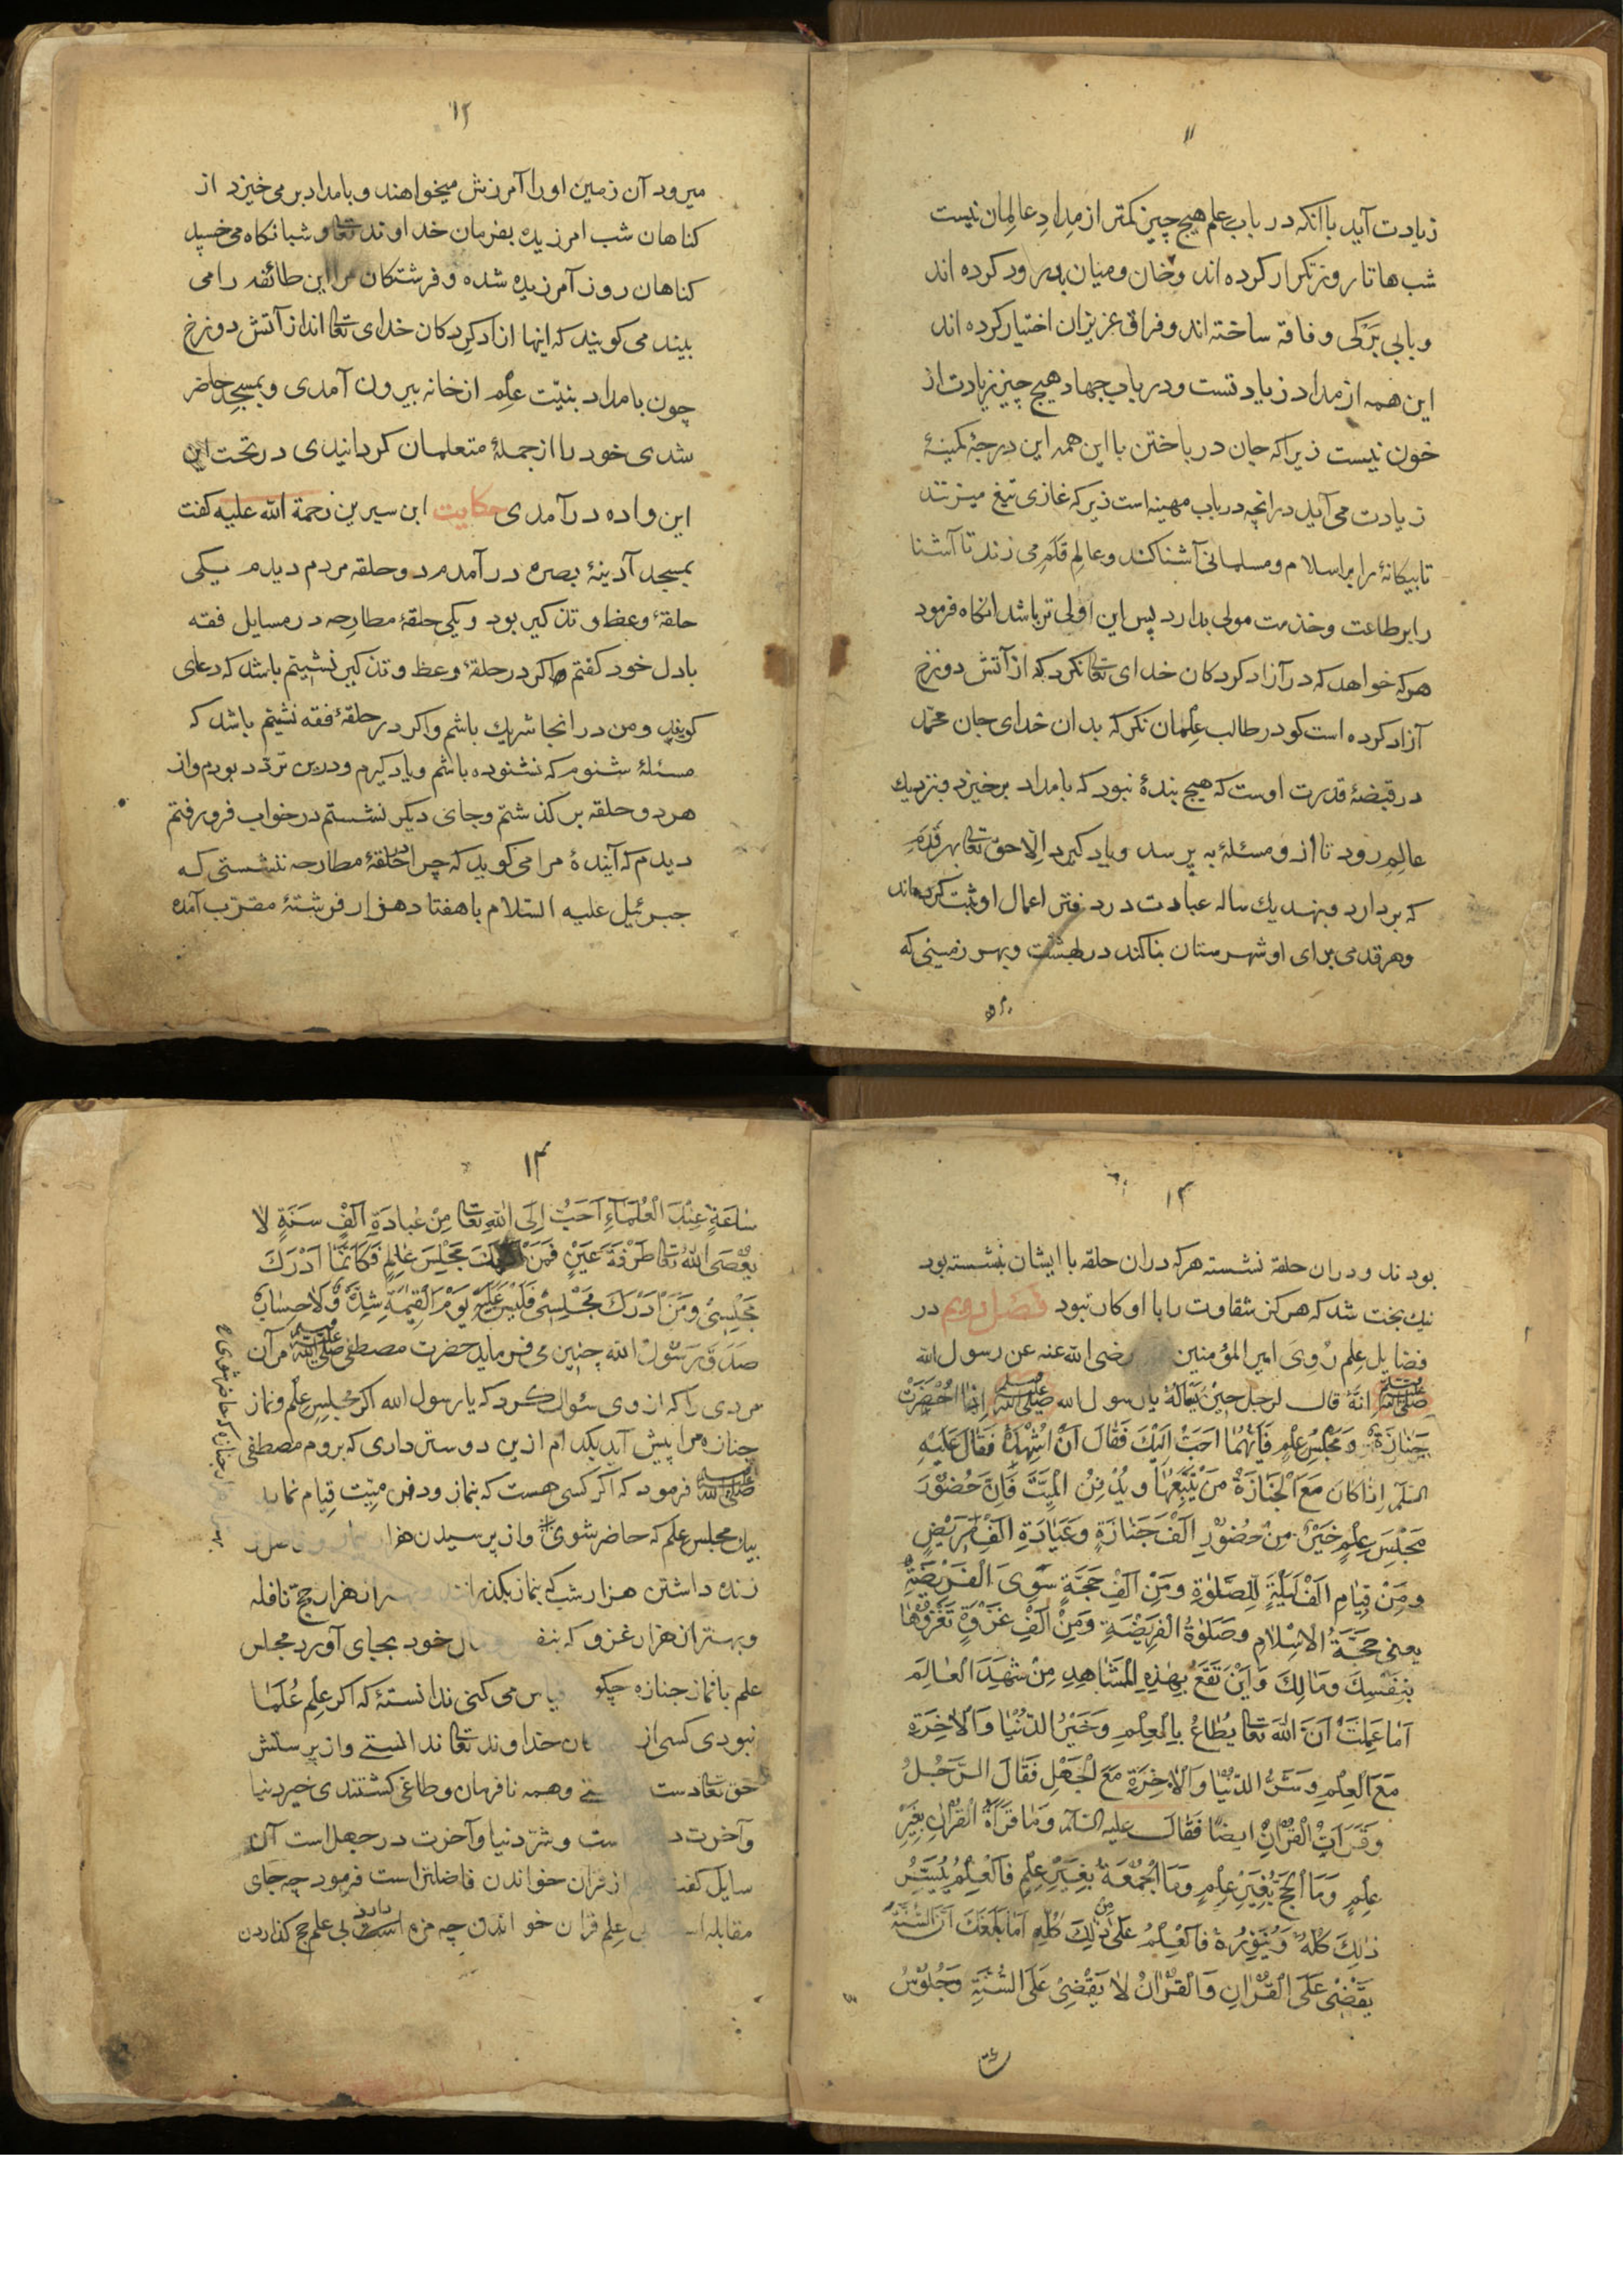 ۱۱
زیادت آید با آنکه در باب علم هیچ چیز کمتر از مدادِ عالِمان نیست
شب ها تا روز تکرار کرده اند و خان و میان بدرود کرده اند
و بابی برگی و فاقه ساخته اند و فراق عزیزان اختیار کرده اند
این همه از مداد زیادتست و در باب جهاد هیچ چیز زیادت از
خون نیست زیرا که جان در باختن با این همه این درجهٔ کمینهٔ
زیادت می آید در انچه در باب مهینه است زیرکه غازی تیغ میزند
تا بیکانهٔ را بر اسلام و مسلمانی آشنا کند و عالِم قلم می زند تا آشنا
را بر طاعت و خذمت مولی بدارد پس این اولی تر باشد انکاه فرمود
هر که خواهد که در آزاد کردکان خدای تعالی نکرد که از آتش دوزخ
آزاد کرده است کو در طالب عِلمان نکر که بدان خدای جان محمّد
در قبضهٔ قدرت اوست که هیچ بندهٔ نبود که بامداد بر خیزد و بنزدیك
عالِم رود تا از و مسئلهٔ به پرسد و یاد کیرد اِلّا حق تعالی بهر قَدَمِ
که بر دارد و بنهد یك ساله عبادت در دفتر اعمال او ثبت کرداند
و هر قدمی برای او شهرستان بنا کند در بهشت و بهر زمینی که
۱۲
میرود آن زمین او را آمرزش میخواهند و بامداد بر می خیزد از
کناهان شب امرزیده بفرمان خداوند تعالی و شبانکاه می خسپد
کناهان روز آمرزیده شده و فرشتکان مر این طائفه را می
بیند می کویند که اینها ازاد کردکان خدای تعالی اند از آتش دوزخ
چون بامداد بنیّت عِلم از خانه بیرون آمدی و بمسجد حاضر
شدی خود را از جملهٔ متعلمان کردانیدی در تحت این
این واده در آمدی حکایت ابن سیرین رحمة الله علیه کفت
بمسجد آدینهٔ بصره در آمدم دو حلقه مردم دیدم یکی
حلقهٔ وعظ و تذکیر بود و یکی حلقهٔ مطارحه در مسایل فقه
با دل خود کفتم اکر در حلقهٔ وعظ و تذکیر نشینم باشد که دعای
کویند و من در انجا شریك باشم و اکر در حلقهٔ فقه نشینم باشد که
مسئلهٔ شنوم که نشنوده باشم و یاد کیرم و درین تردّد بودم و از
هر دو حلقه بر کذشتم و جای دیکر نشستم در خواب فرو رفتم
دیدم که آیندهٔ مرا می کوید که چرا در حلقهٔ مطارحه ننشستی که
جبرئیل علیه السّلام با هفتاد هزار فرشتهٔ مقرّب آمده
۱۳
بودند و در ان حلقه نشسته هر که در ان حلقه با ایشان نشسته بود
نیك بخت شد که هرکز شقاوت را با او کار نبود فصل دویم در
فضایل عِلم رُوِیَ امیر المؤمنین رضی الله عنه عن رسول الله
صلی الله علیه وسلم انّهٔ قال لرجل حِیْنَ یَا رسول الله صلی الله علیه وسلم اِذَا اُحْضِرَتْ
جَنَازَةٌ وَ مَجْلِسُ عِلْمٍ فَاَیُّهُمَا اَحَبُّ اِلَیْكَ فَقَالَ اَنْ اُشْهِدَ فَقَالَ عَلَیْهِ
السّلم اِذَا کَانَ مَعَ الْجَنَازَةِ مَنْ یَتَّبِعُهَا وَ یُدْفِنُ الْمِیَّتَ فَاِنَّ حُضُوْرَ
مَجْلِسِ عِلْمٍ خَیْرٌ مِنْ حُضُوْرِ اَلْفِ جَنَازَةٍ وَ عَیَادَةِ اَلْفِ مَرِیْضٍ
وَ مِنْ قِیَامِ اَلْفِ لَیْلَةٍ لِلصَّلٰوةِ وَ مِنْ اَلْفِ حَجَّةٍ سِوَی الْفَرِیْضَةِ
یعنی حَجَّةُ الْاِسْلَامِ وَ صَلَوٰةُ الْفَرِیْضَةِ وَ مِنْ اَلْفِ غَزْوَةٍ تَغْزُوْهَا
بِنَفْسِكَ وَ مَالِكَ وَ اَیْنَ تَقَعُ بِهٰذِهِ الْمَشَاهِدِ مِنْ شَهِدَ الْعَالِمَ
اَمَا عَلِمْتَ اَنَّ اللهَ تعالی یُطَاعُ بِالْعِلْمِ وَ خَیْرُ الدُّنْیَا وَ الْاٰخِرَةِ
مَعَ الْعِلْمِ وَ شَرُّ الدُّنْیَا وَ الْاٰخِرَةِ مَعَ الْجَهْلِ فَقَالَ الرَّجُلُ
وَ قَرَاتُ الْقُرْاٰنِ ایضًا فَقَالَ علیه السّلم وَ مَا قَرَأةُ الْقُرْاٰنِ بِغَیْرِ
عِلْمٍ وَ مَا الْحَجُّ بِغَیْرِ عِلْمٍ وَ مَا الْجُمُعَةُ بِغَیْرِ عِلْمٍ فَالْعِلْمُ یُیَسِّرُ
ذٰلِكَ کُلَّهُ وَ یُنَوِّرُهُ فَالْعِلْمُ عَلَی ذٰلِكَ کُلِّهِ اَمَا بَلَغَكَ اَنَّ السُّنَّةَ
یَقْضِیْ عَلَی الْقُرْاٰنِ وَ الْقُرْاٰنُ لَا یَقْضِیْ عَلَی السُّنَّةِ وَ جُلُوْسُ
۱۴
سَاعَةٍ عِنْدَ الْعُلَمَآءِ اَحَبُّ اِلَی اللهِ تعالی مِنْ عِبَادَةِ اَلْفِ سَنَةٍ لَا
یُعْصَی اللهُ تعالی طَرْفَةَ عَیْنٍ فَمَنْ مَجْلِسَ عَالِمٍ فَکَاَنَّمَا اَدْرَكَ
مَجْلِسِیْ وَ مَنْ اَدْرَكَ مَجْلِسِیْ فَلَیْسَ عَلَیْهِ یَوْمَ الْقِیٰمَةِ شِدَّةٌ وَ لَا حِسَابٌ
صَدَقَ رَسُوْلُ الله چنین می فرماید حضرت مصطفی صلی الله علیه وسلم مر آن
مردی را که از وی سئوال کرد که یا رسول الله اکر مجلسِ عِلم و نماز
جنازه مرا پیش آید بکدام ازین دوستر داری که بروم مصطفی
صلی الله علیه وسلم فرمود که اکر کسی هست که بنماز و دفن میّت قیام نماید
بیك مجلس علم که حاضر شوی و از پرسیدن هزار بیمار
زنده داشتن هزار شب که بنماز بکذرانند و بهتر از هزار حج نافله
و بهتر از هزار غزو که بنفس خود بجای آورد مجلس
علم با نماز جنازه چکونه قیاس می کنی ندانستهٔ که اکر علِم عُلَمَا
نبودی کسی از خداوند تعالی ندانستے و از پرستش
حق تعالی دست وهمه نافرمان و طاغی کشتندی خیر دنیا
و آخرت در است و شرّ دنیا و آخرت در جهل است آن
سایل کفت از قران خواندن فاضلتر است فرمود چه جای
مقابله است بی عِلم قران خواندن چه مزه دارد بی علم حج کذاردن